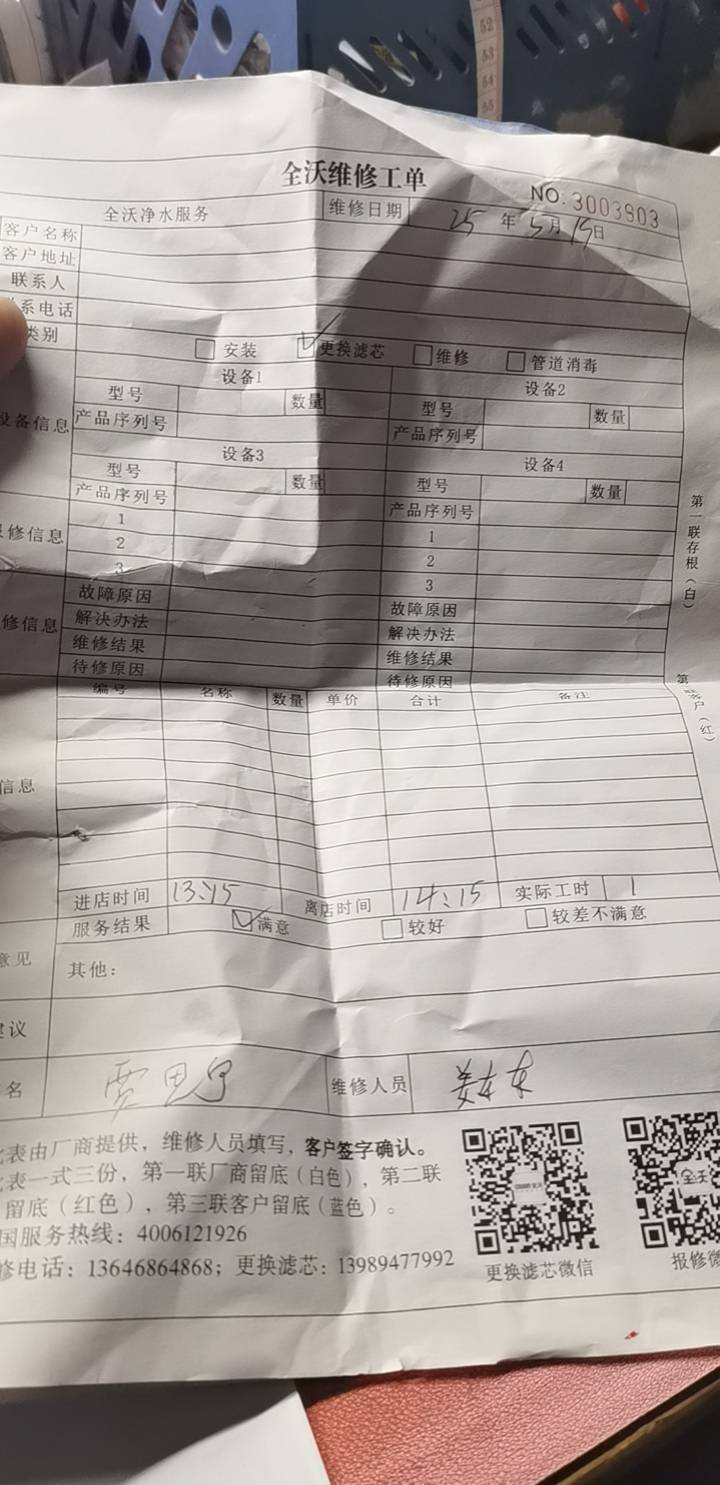 52
53
54
55
全沃维修工单
NO. 3003903
全沃净水服务 维修日期 25 年 5 月 15 日
客户名称
客户地址
联系人
系电话
类别 安装 更换滤芯 维修 管道消毒
设备1 设备2
型号 数量 型号 数量
设备信息 产品序列号 产品序列号
设备3 设备4
型号 数量 型号 数量
产品序列号 产品序列号
修信息 1 1
2 2
3 3
故障原因 故障原因
修信息 解决办法 解决办法
维修结果 维修结果
待修原因 待修原因
编号 名称 数量 单价 合计 备注
信息
进店时间 13:15 离店时间 14:15 实际工时 1
服务结果 满意 较好 较差不满意
意见 其他：
建议
名 维修人员
此表由厂商提供，维修人员填写，客户签字确认。
表一式三份，第一联厂商留底（白色），第二联
留底（红色），第三联客户留底（蓝色）。
国服务热线：4006121926
修电话：13646864868；更换滤芯：13989477992
更换滤芯微信
报修微
第一联存根（白）
第
客户（红）